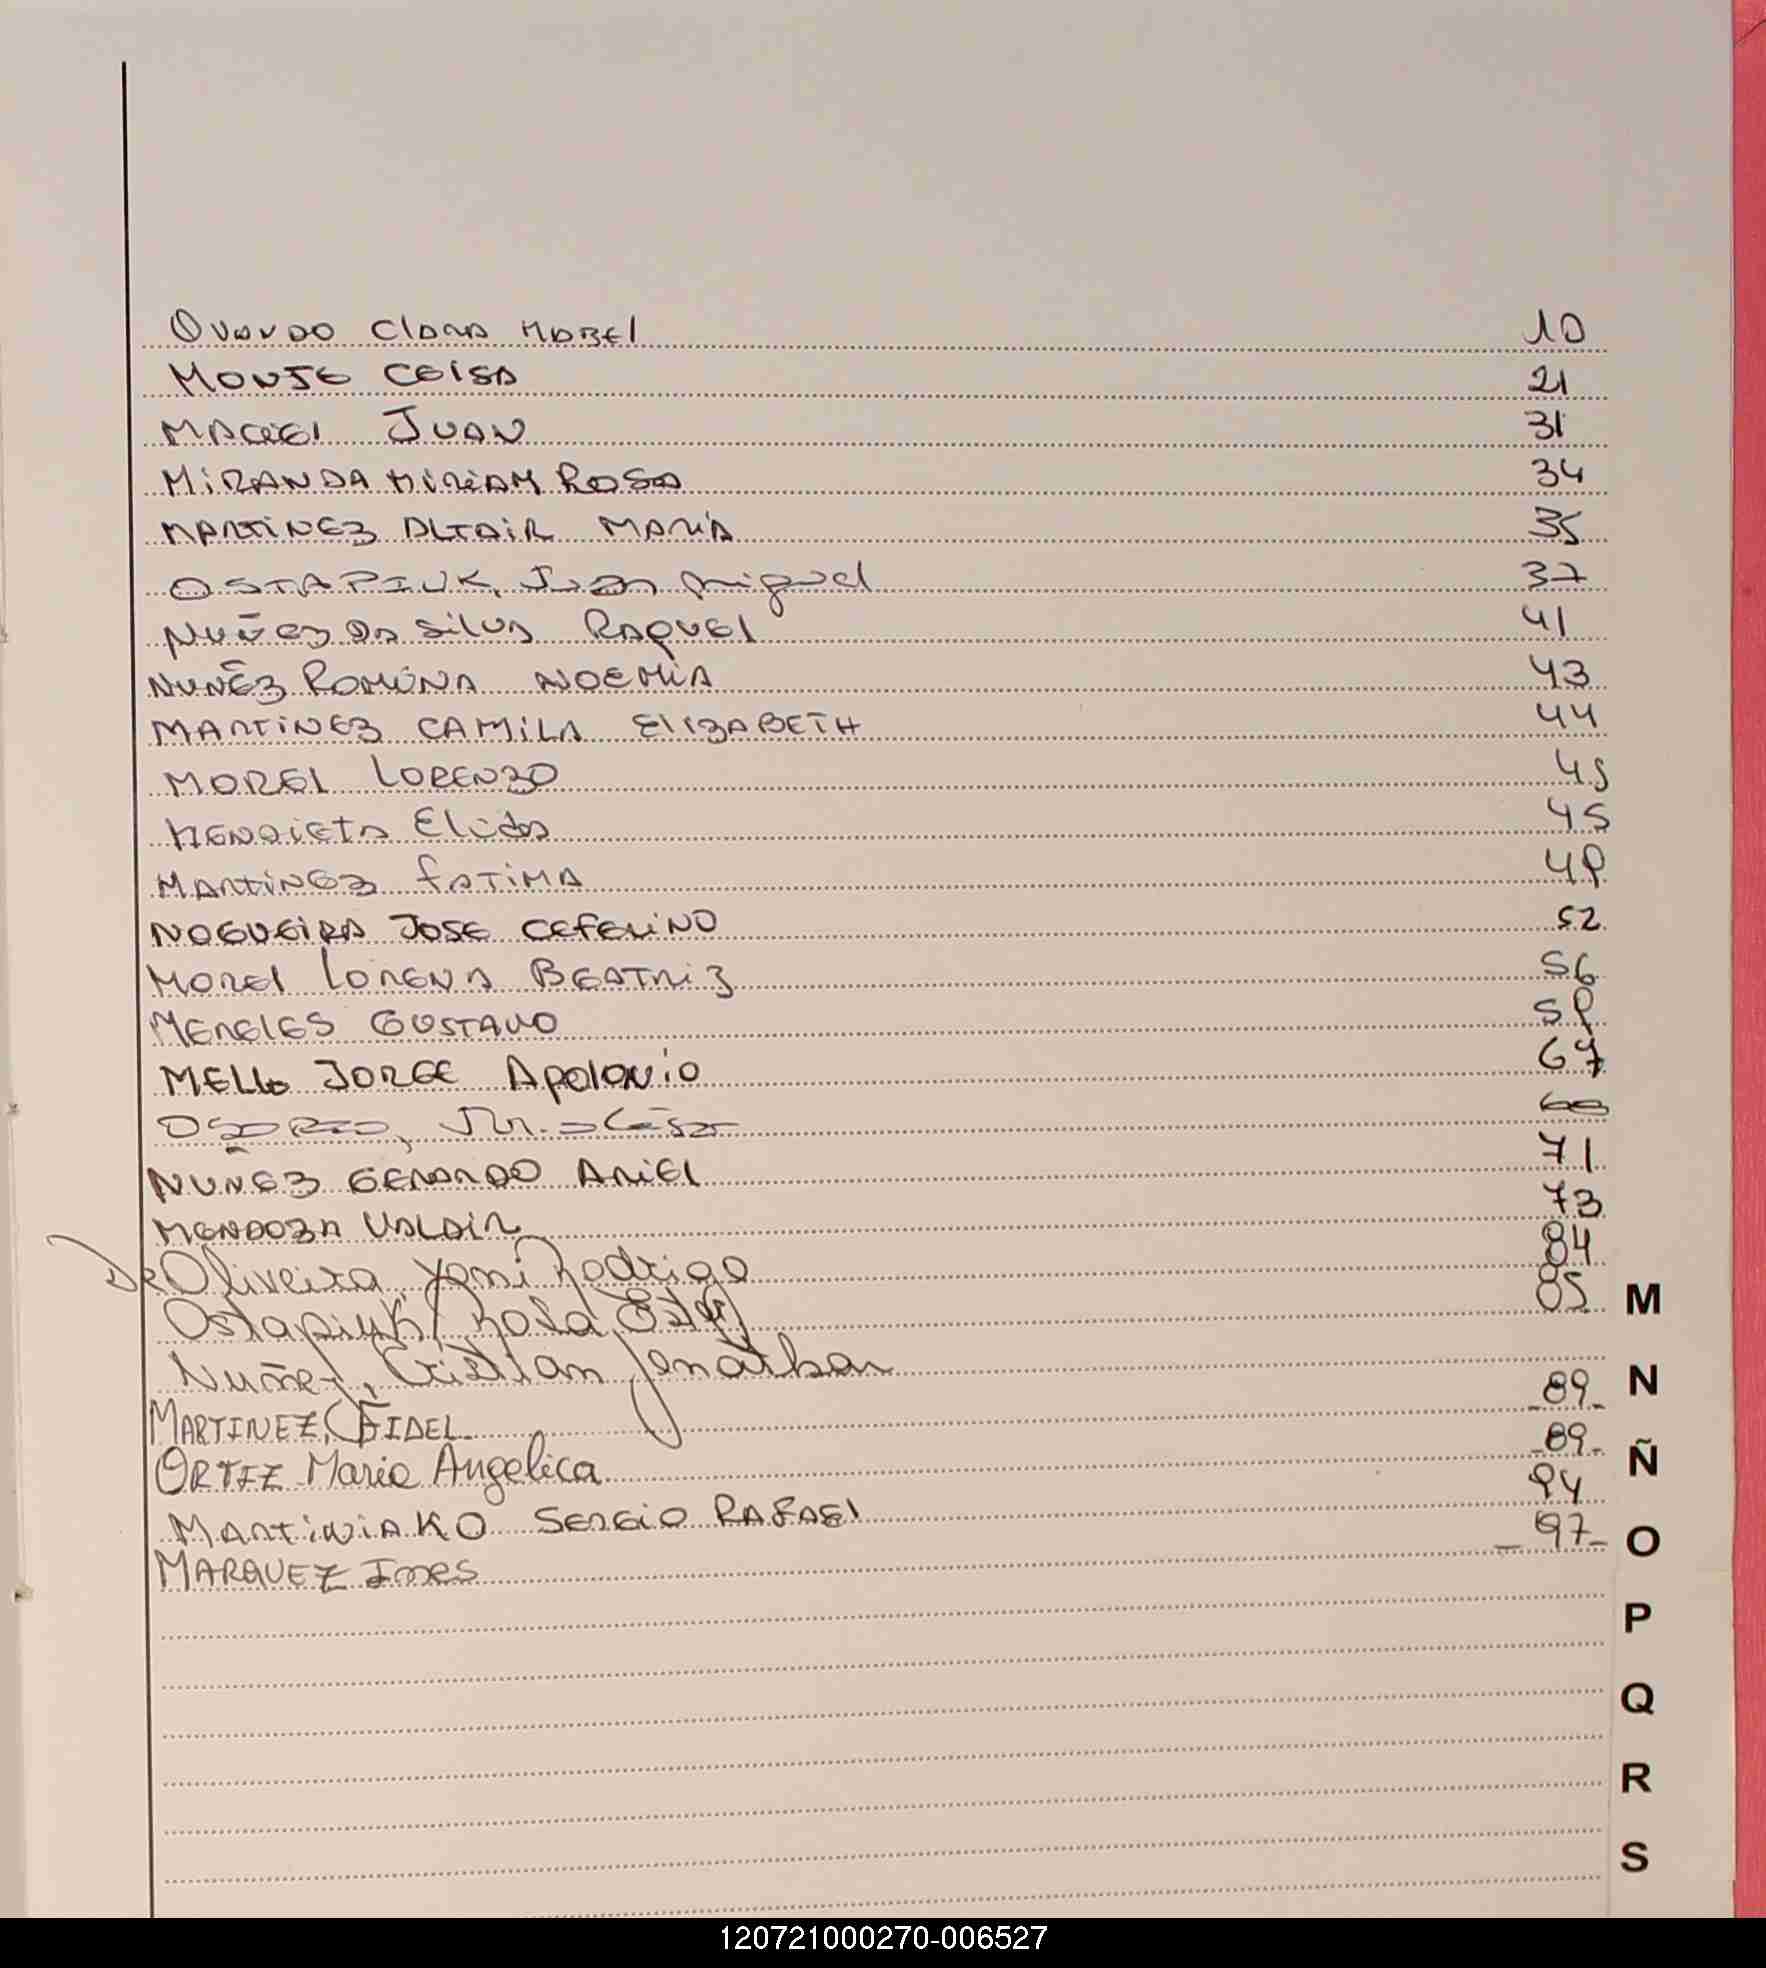 Ovando Clara Mabel 10
Monje Ceisa 21
Maciel Juan 31
Miranda Miriam Rosa 34
Martinez Altair Maria 35
Ostapiuk, Juan Miguel 37
Nuñez Da Silva Raquel 41
Nuñez Romina Noemia 43
Martinez Camila Elizabeth 44
Morel Lorenzo 45
Mendieta Elida 45
Martinez Fatima 48
Nogueira Jose Ceferino 52
Morel Lorena Beatriz 56
Mereles Gustavo 58
Mello Jorge Apolonio 67
Osorio, 68
Nuñez Gerardo Ariel 71
Mendoza Valdir 73
De Oliveira, Yoni Rodrigo 84
Ostapiuk, Rosa 85
Nuñez, Cristian Jonathan
Martinez, Fidel 89
Ortiz Maria Angelica 89
Martiniako Sergio Rafael 94
Marquez Ines 97
M
N
Ñ
O
P
Q
R
S
120721000270-006527